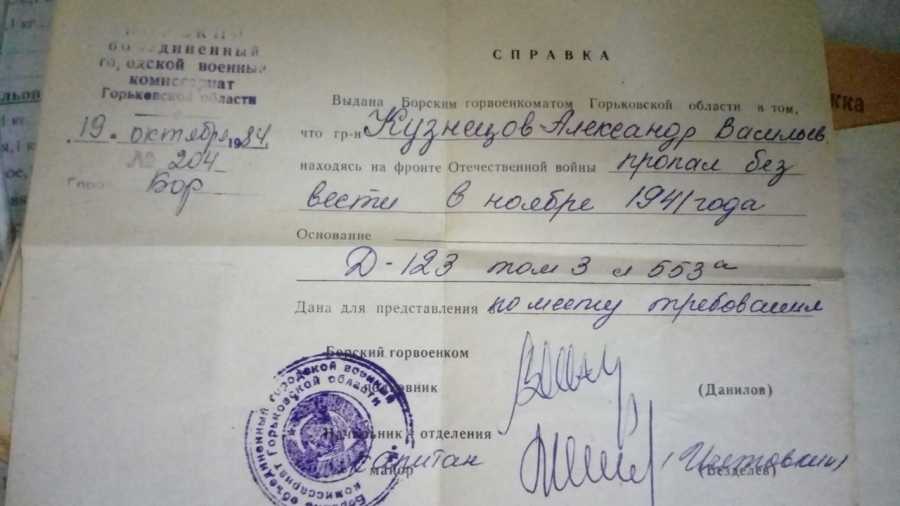 БОРСКИЙ
объединенный
городской военный
комиссариат
Горьковской области
19. октября 1984
№ 204
Город Бор
СПРАВКА
Выдана Борским горвоенкоматом Горьковской области в том,
что гр-н Кузнецов Александр Васильев
находясь на фронте Отечественной войны пропал без
вести в ноябре 1941 года
Основание
Д-123 том 3 л 553а
Дана для представления по месту требования
Борский горвоенком
(Данилов)
Начальник отделения
капитан
майор
(Безделев)
объединенный городской военный
комиссариат Горьковской области
кка